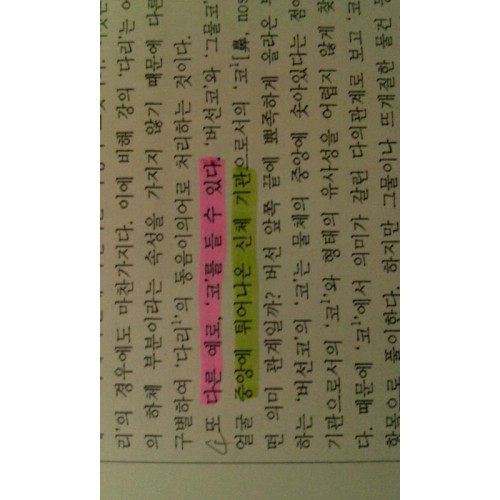 리'의 경우에도 마찬가지다. 이에 비해 강의 '다리'는
의 하체 부분이라는 속성을 가지지 않기 때문에 다른
구별하여 '다리¹'의 동음이의어로 처리하는 것이다.
또 다른 예로, '코'를 들 수 있다. '버선코'와 '그물코'
얼굴 중앙에 튀어나온 신체 기관으로서의 '코'[鼻, nos
떤 의미 관계일까? 버선 앞쪽 끝에 뾰족하게 올라온
하는 '버선코'의 '코'는 물체의 중앙에 솟아있다는 점에
기관으로서의 '코¹'와 형태의 유사성을 어렵지 않게 찾
다. 때문에 '코¹'에서 의미가 갈린 다의관계로 보고 '코
항목으로 풀이한다. 하지만 그물이나 뜨개질한 물건